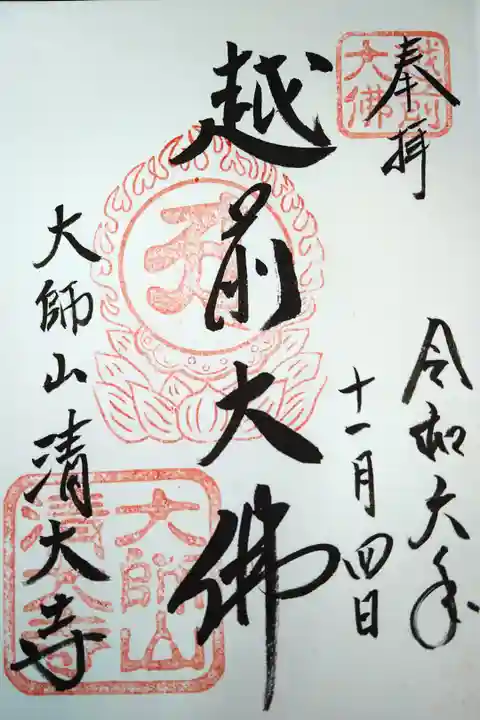 奉拝
越前大佛
令和六年
十一月四日
越前大佛
大師山清大寺
大師山清大寺